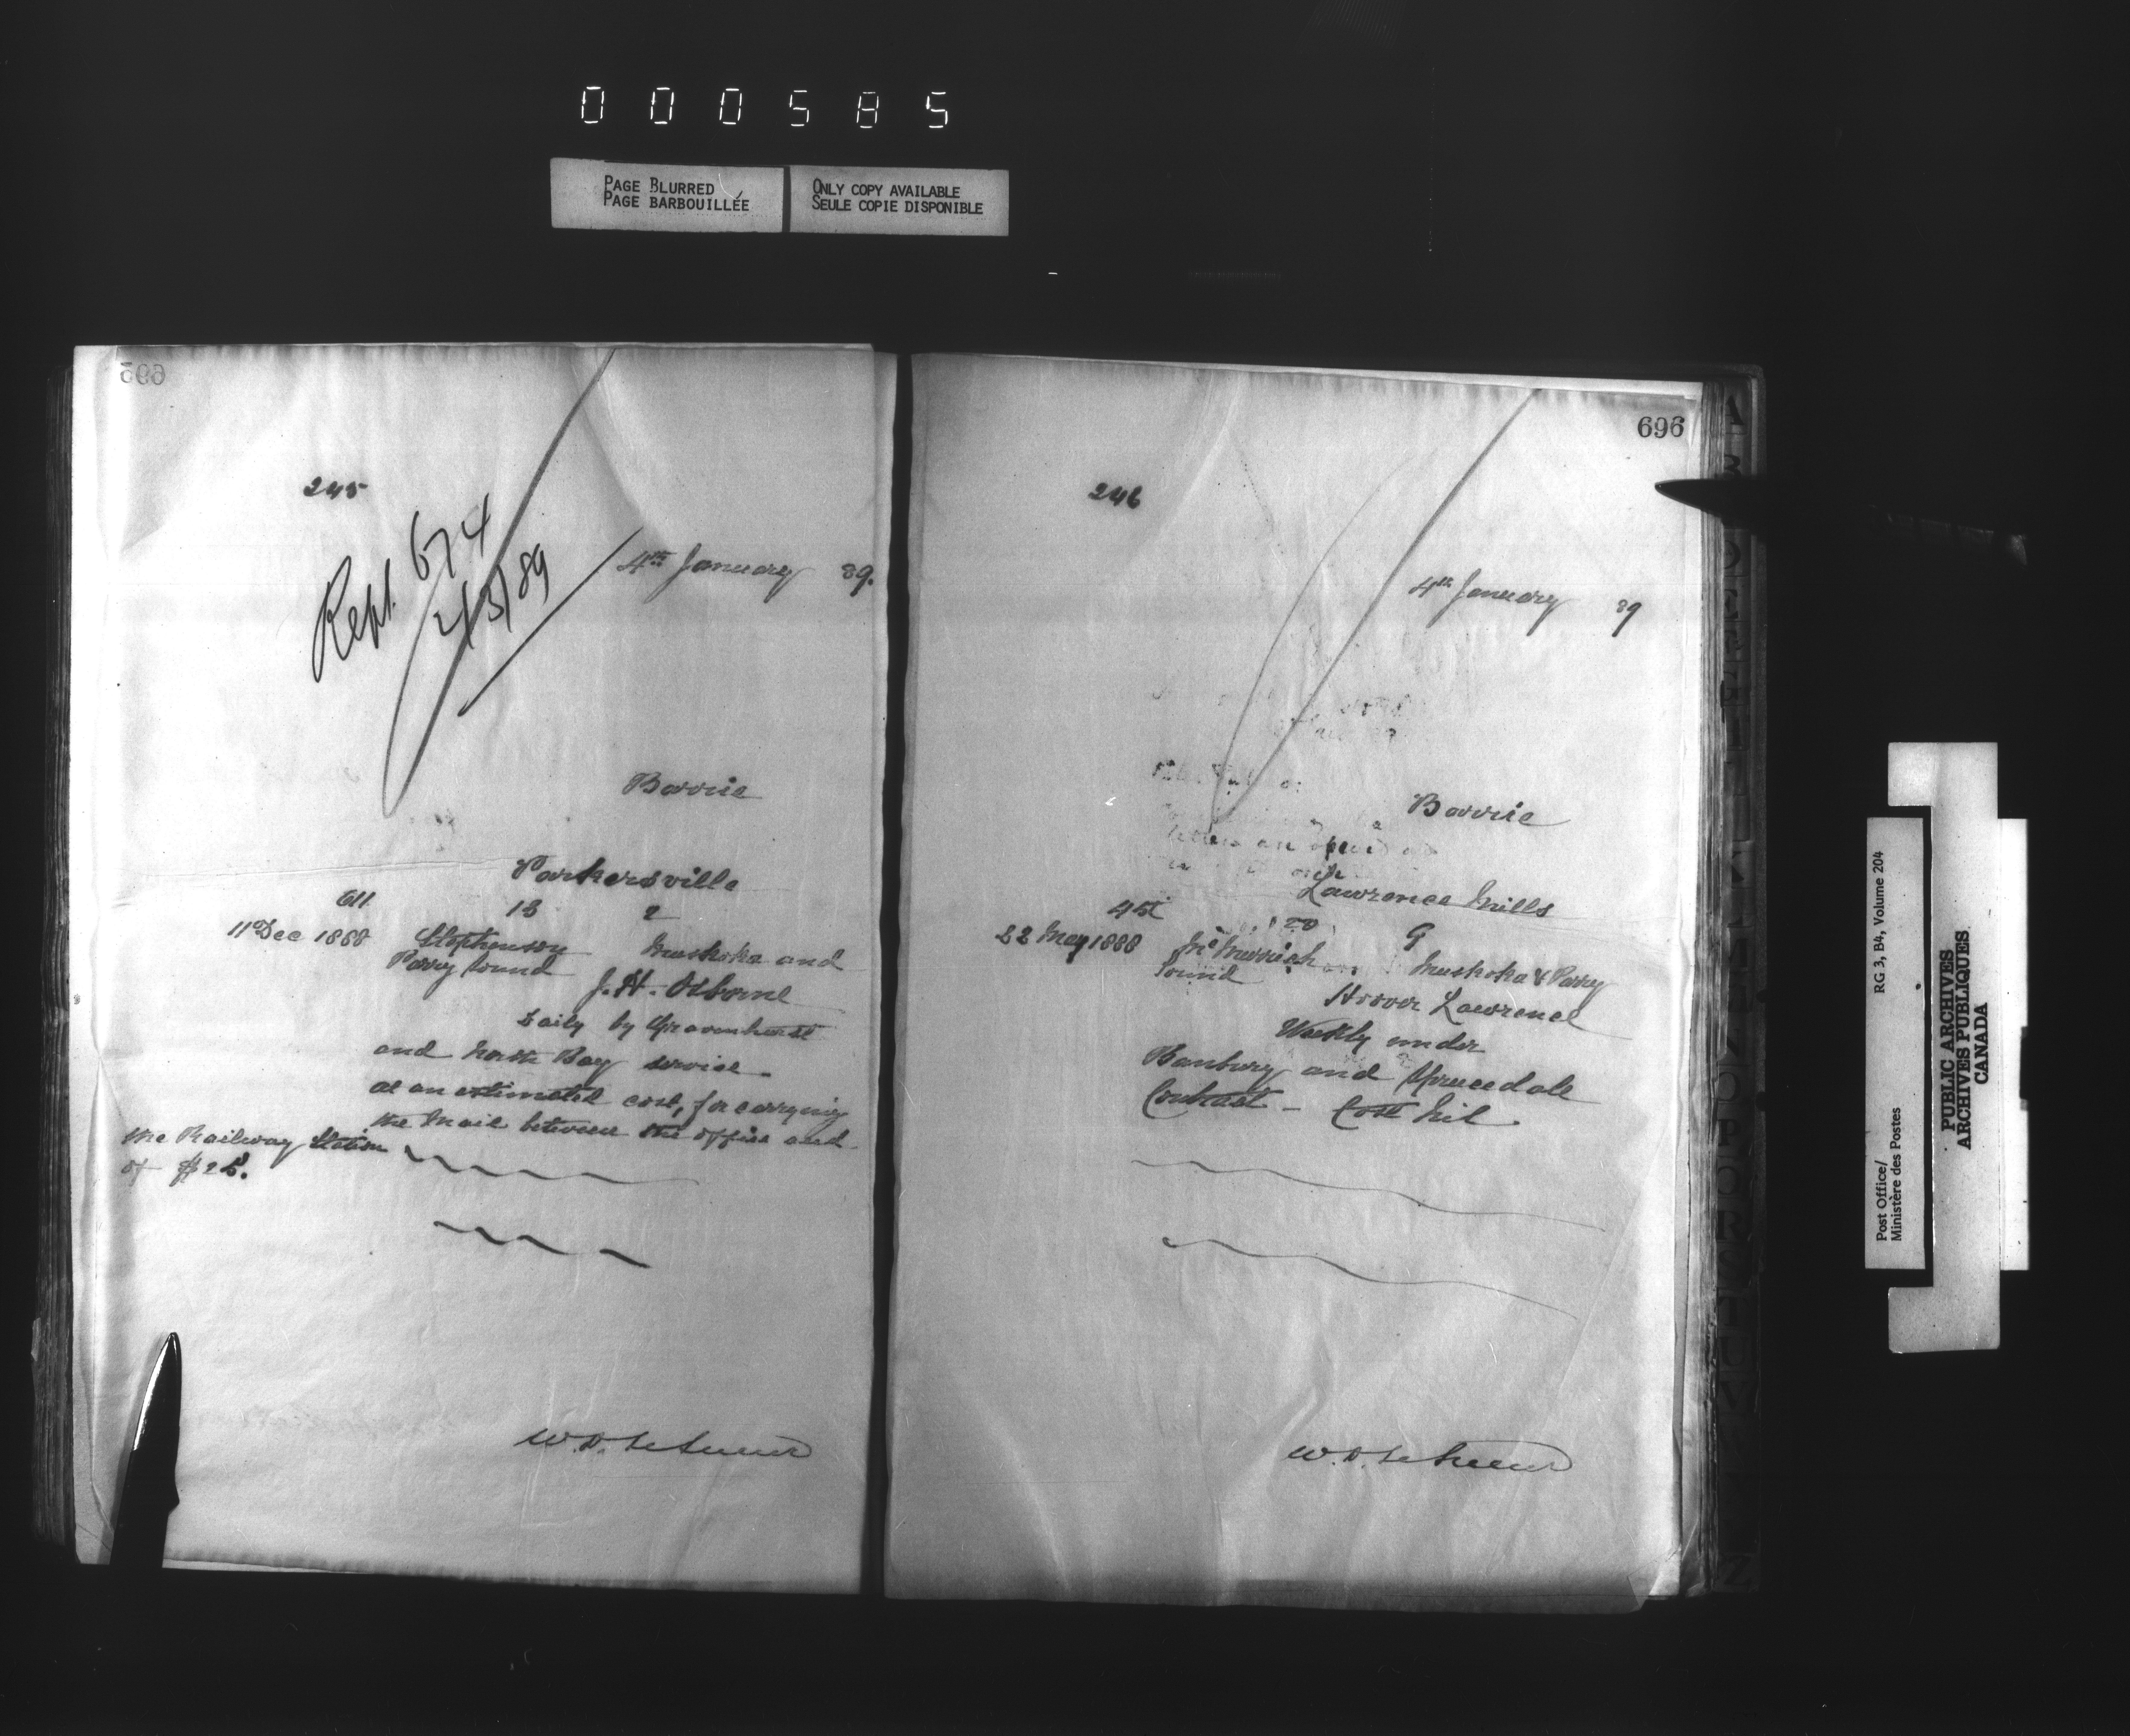 000585
PAGE BLURRED
PAGE BARBOUILLÉE
ONLY COPY AVAILABLE
SEULE COPIE DISPONIBLE
695
245
Rept. 674
2/3/89
4th January 89.
Barrie
Parkersville
611
13 2
11 Dec 1888 Stephenson Muskoka and
Parry Sound
J. H. Osborne
Daily by Gravenhurst
and North Bay service
at an estimated cost, for carrying
the Mail between the office and
the Railway Station
of $25.
W. D. LeSueur
696
246
4th January 89
Barrie
letters are
Lawrence Mills
451
20 9
22 May 1888 McMurrich Muskoka & Parry
Sound
Hoover Lawrence
Weekly under
Banbury and Sprucedale
Contract - Cost Nil.
W. D. LeSueur
Post Office/ RG 3, B4, Volume 204
Ministère des Postes
PUBLIC ARCHIVES
ARCHIVES PUBLIQUES
CANADA